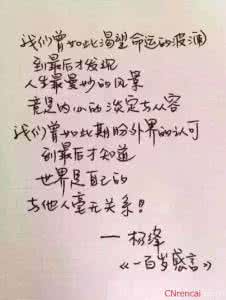 我们曾如此渴望命运的波澜
到最后才发现
人生最曼妙的风景
竟是内心的淡定与从容
我们曾如此期盼外界的认可
到最后才知道
世界是自己的
与他人毫无关系!
— 杨绛
《一百岁感言》
CNrencai